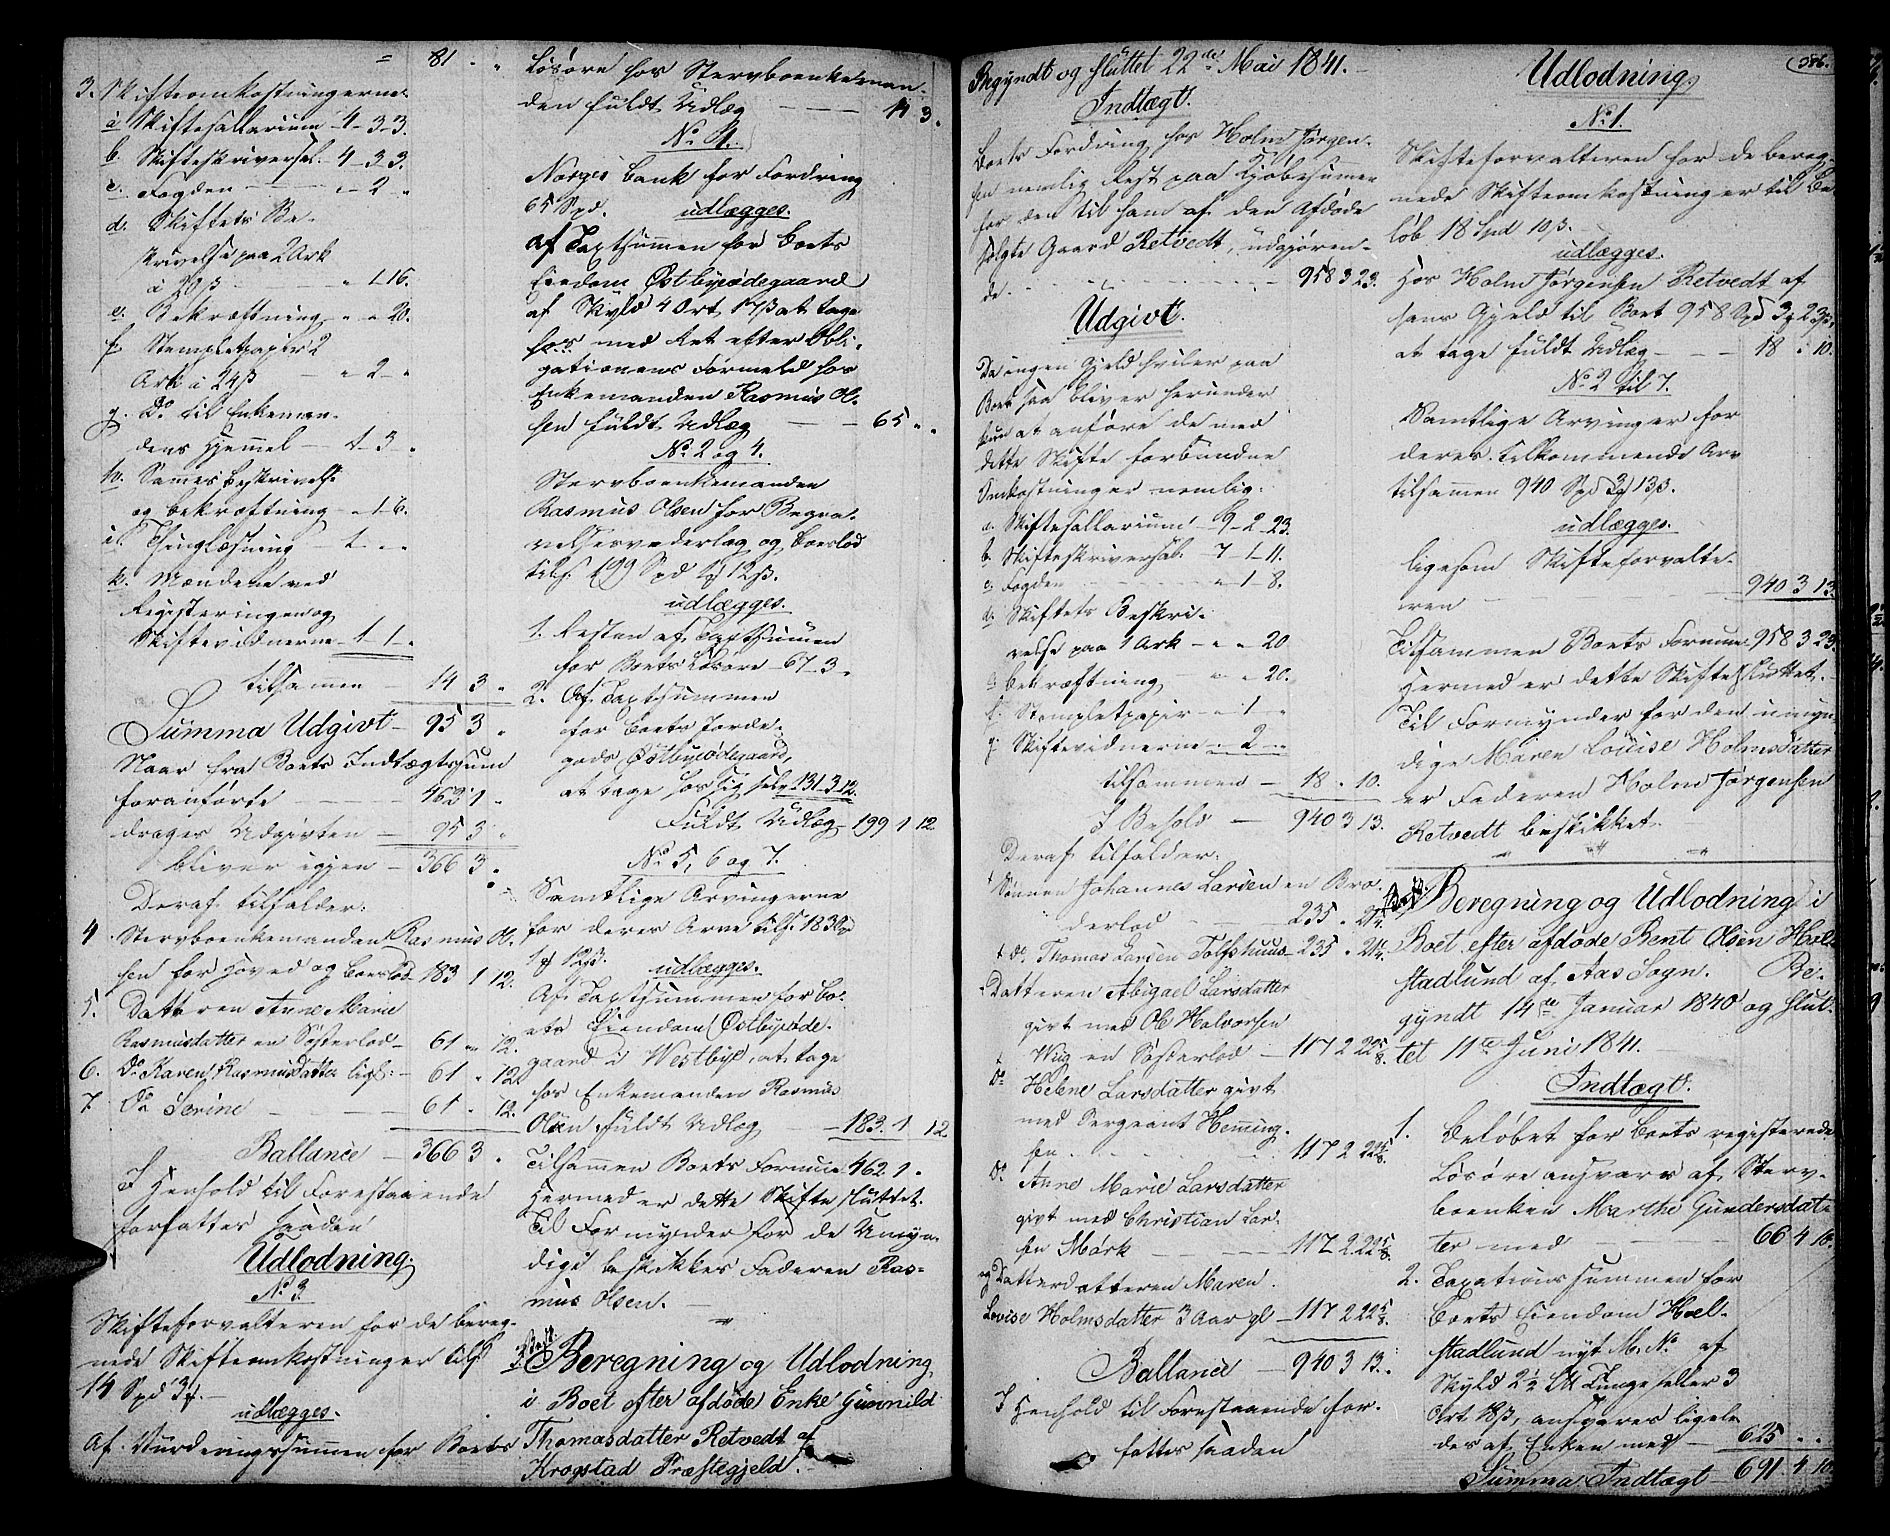 = 81 " "
3. Skifteomkostningerne
a Skiftesallarium 4-3-3.
b. Skifteskriversal. 4-3 3.
c. Fogden " 2 "
d. Skiftets Be-
skrivelse paa 2 Ark
à 20 ß " 1 16.
e. Bekræftning " " 20.
f. Stempletpapir 2
Ark à 24 ß " 2 "
g. Do til Enkeman-
dens Hjemmel 1-3 "
h. Sammes beskrivelse
og bekræftning " 1 6.
i. Thinglæsning 1 " "
k. Mændene ved
Registeringen og
Skiftevidnerne 1 1 "
tilsamen 14 3 "
Summa Udgivt 95 3 "
Naar fra Boets Indtægtssum
foranførte 462 1 "
drages Udgivten 95 3 "
bliver igjen 366 3 "
Deraf tilfalder:
4 Stervboenkemanden Rasmus Ol-
sen for Hoved og boeslod 183 1 12.
5. Datteren Anne Marie
Rasmusdatter en Søsterlod 61 " 12.
6. Do Karen Rasmusdatter lig: 61 " 12.
7. Do Serine 61 " 12.
Ballance 366 3 "
I Henhold til Forestaaende
forfattes saadan
Udlodning.
No 3.
Skifteforvalteren for de bereg-
nede Skifteomkostninger tils
14 Spd 3
udlægges.
Af Vurderingssummen for Boets
Løsøre hos Stervboenkeman-
den fuldt Udlæg 14 3 "
No 1.
Norges Bank for Fordring
65 Spd. udlægges.
Af Taxtsummen for boets
Eiendom Østbyeødegaard
af Skyld 4 Ort 17 ß at tage
hos med Ret efter Obli-
gationens Formeld hos
Enkemanden Rasmus Ol-
sen fuldt Udlæg 65 " "
No 2 og 4.
Stervboenkemanden
Rasmus Olsen for Begra-
velsesvederlag og boeslod
tils. 199 Spd 1 12 ß.
udlægges.
1. Resten af Taxtsummen
for Boets Løsøre 67 3 "
2. Af Taxtsummen
for boets Jorde-
gods Østbyeødegaard,
at tage hos sig selv 131 3 12.
Fuldt Udlæg 199 1 12.
No 5, 6 og 7.
Samtlige Arvingerne
for deres Arv tils. 183 Spd
1 12 ß.
udlægges.
Af Taxtsummen for bo-
ets Eiendom Østbyeøde-
gaard i Westbye, at tage
hos Enkemanden Rasmus
Olsen fuldt Udlæg 183. 1 12
Tilsammen Boets Formue 462 1 "
Hermed er dette Skifte sluttet.
Til Formynder for de Umyn-
dige beskikkes Faderen Ras-
mus Olsen.
Beregning og Udlodning
i Boet efter afdøde Enke Gunnild
Thomasdatter Retvedt af
Krogstad Præstegjeld.
Begyndt og sluttet 22de Mai 1841.
Indtægt.
Boets Fordring hos Holm Jørgen-
sen nemlig Rest paa Kjøbesummen
for den til ham af den Afdøde
solgte Gaard Retvedt, udgjøren-
de 958 3 23.
Udgivt.
Da ingen Gjeld hviler paa
Boet saa bliver herunder
kun at anføre de med
dette Skifte forbundne
Omkostninger nemlig:
a. Skiftesallarium 9-2-23.
b. Skifteskriversal. 7-1-11.
c. Fogden " 1 8.
d. Skiftets Beskri-
velse paa 1 Ark " " 20
e. bekræftning " " 20.
f. Stempletpapir " 1 "
g. Skiftevidnerne " 2 "
tilsammen 18 " 10.
I Behold 940 3 13.
Deraf tilfalder:
Sønnen Johannes Larsen en Bro-
derlod 235 " 21¼.
do Thomas Larsen Tolfshuus 235 " 21¼.
Datteren Abigael Larsdatter
givt med Ole Halvorsen
Wug en Søsterlod 117 2 22⅝.
Do Helene Larsdatter givt
med Sergeant Hemming-
sen 117 2 22⅝.
Do Anne Marie Larsdatter
givt med Christian Lar-
sen Mørk 117 2 22⅝.
og Datterdatteren Maren
Lovise Holmsdatter 3 Aar gl 117 2 22⅝.
Ballance 940 3 13.
I Henhold til Forestaaende for-
fattes saadan
586.
Udlodning.
No 1.
Skifteforvalteren for de bereg-
nede Skifteomkostninger til Be-
løb 18 Spd 10 ß.
udlægges.
Hos Holm Jørgensen Retvedt af
hans Gjeld til Boet 958 Spd 3 23 ß,
at tage fuldt Udlæg 18 " 10.
No 2 til 7.
Samtlige Arvinger for
deres tilkommende Arv
tilsammen 940 Spd 3 13 ß.
udlægges.
ligesom Skifteforvalte-
ren 940 3 13.
Tilsammen Boets Formue 958 3 23.
Hermed er dette Skifte sluttet.
Til Formynder for den umyn-
dige Maren Louise Holmsdatter
er Faderen Holm Jørgensen
Retvedt beskikket.
Beregning og Udlodning i
Boet efter afdøde Bent Olsen Hol-
stadlund af Aas Sogn. Be-
gyndt 14de Januar 1840 og slut-
tet 11te Juni 1841.
Indtægt.
1. Beløbet for boets registerede
Løsøre ansvares af Sterv-
boenken Marthe Gundersdat-
ter med 66 4 10.
2. Taxationssummen for
boets Eiendom Hol-
stadlund nyt M. No af
Skyld 2½ L℔ Tunge eller 3
Ort 18 ß, ansvares ligele-
des af Enken med 625 " "
Summa Indtægt 691 4 10